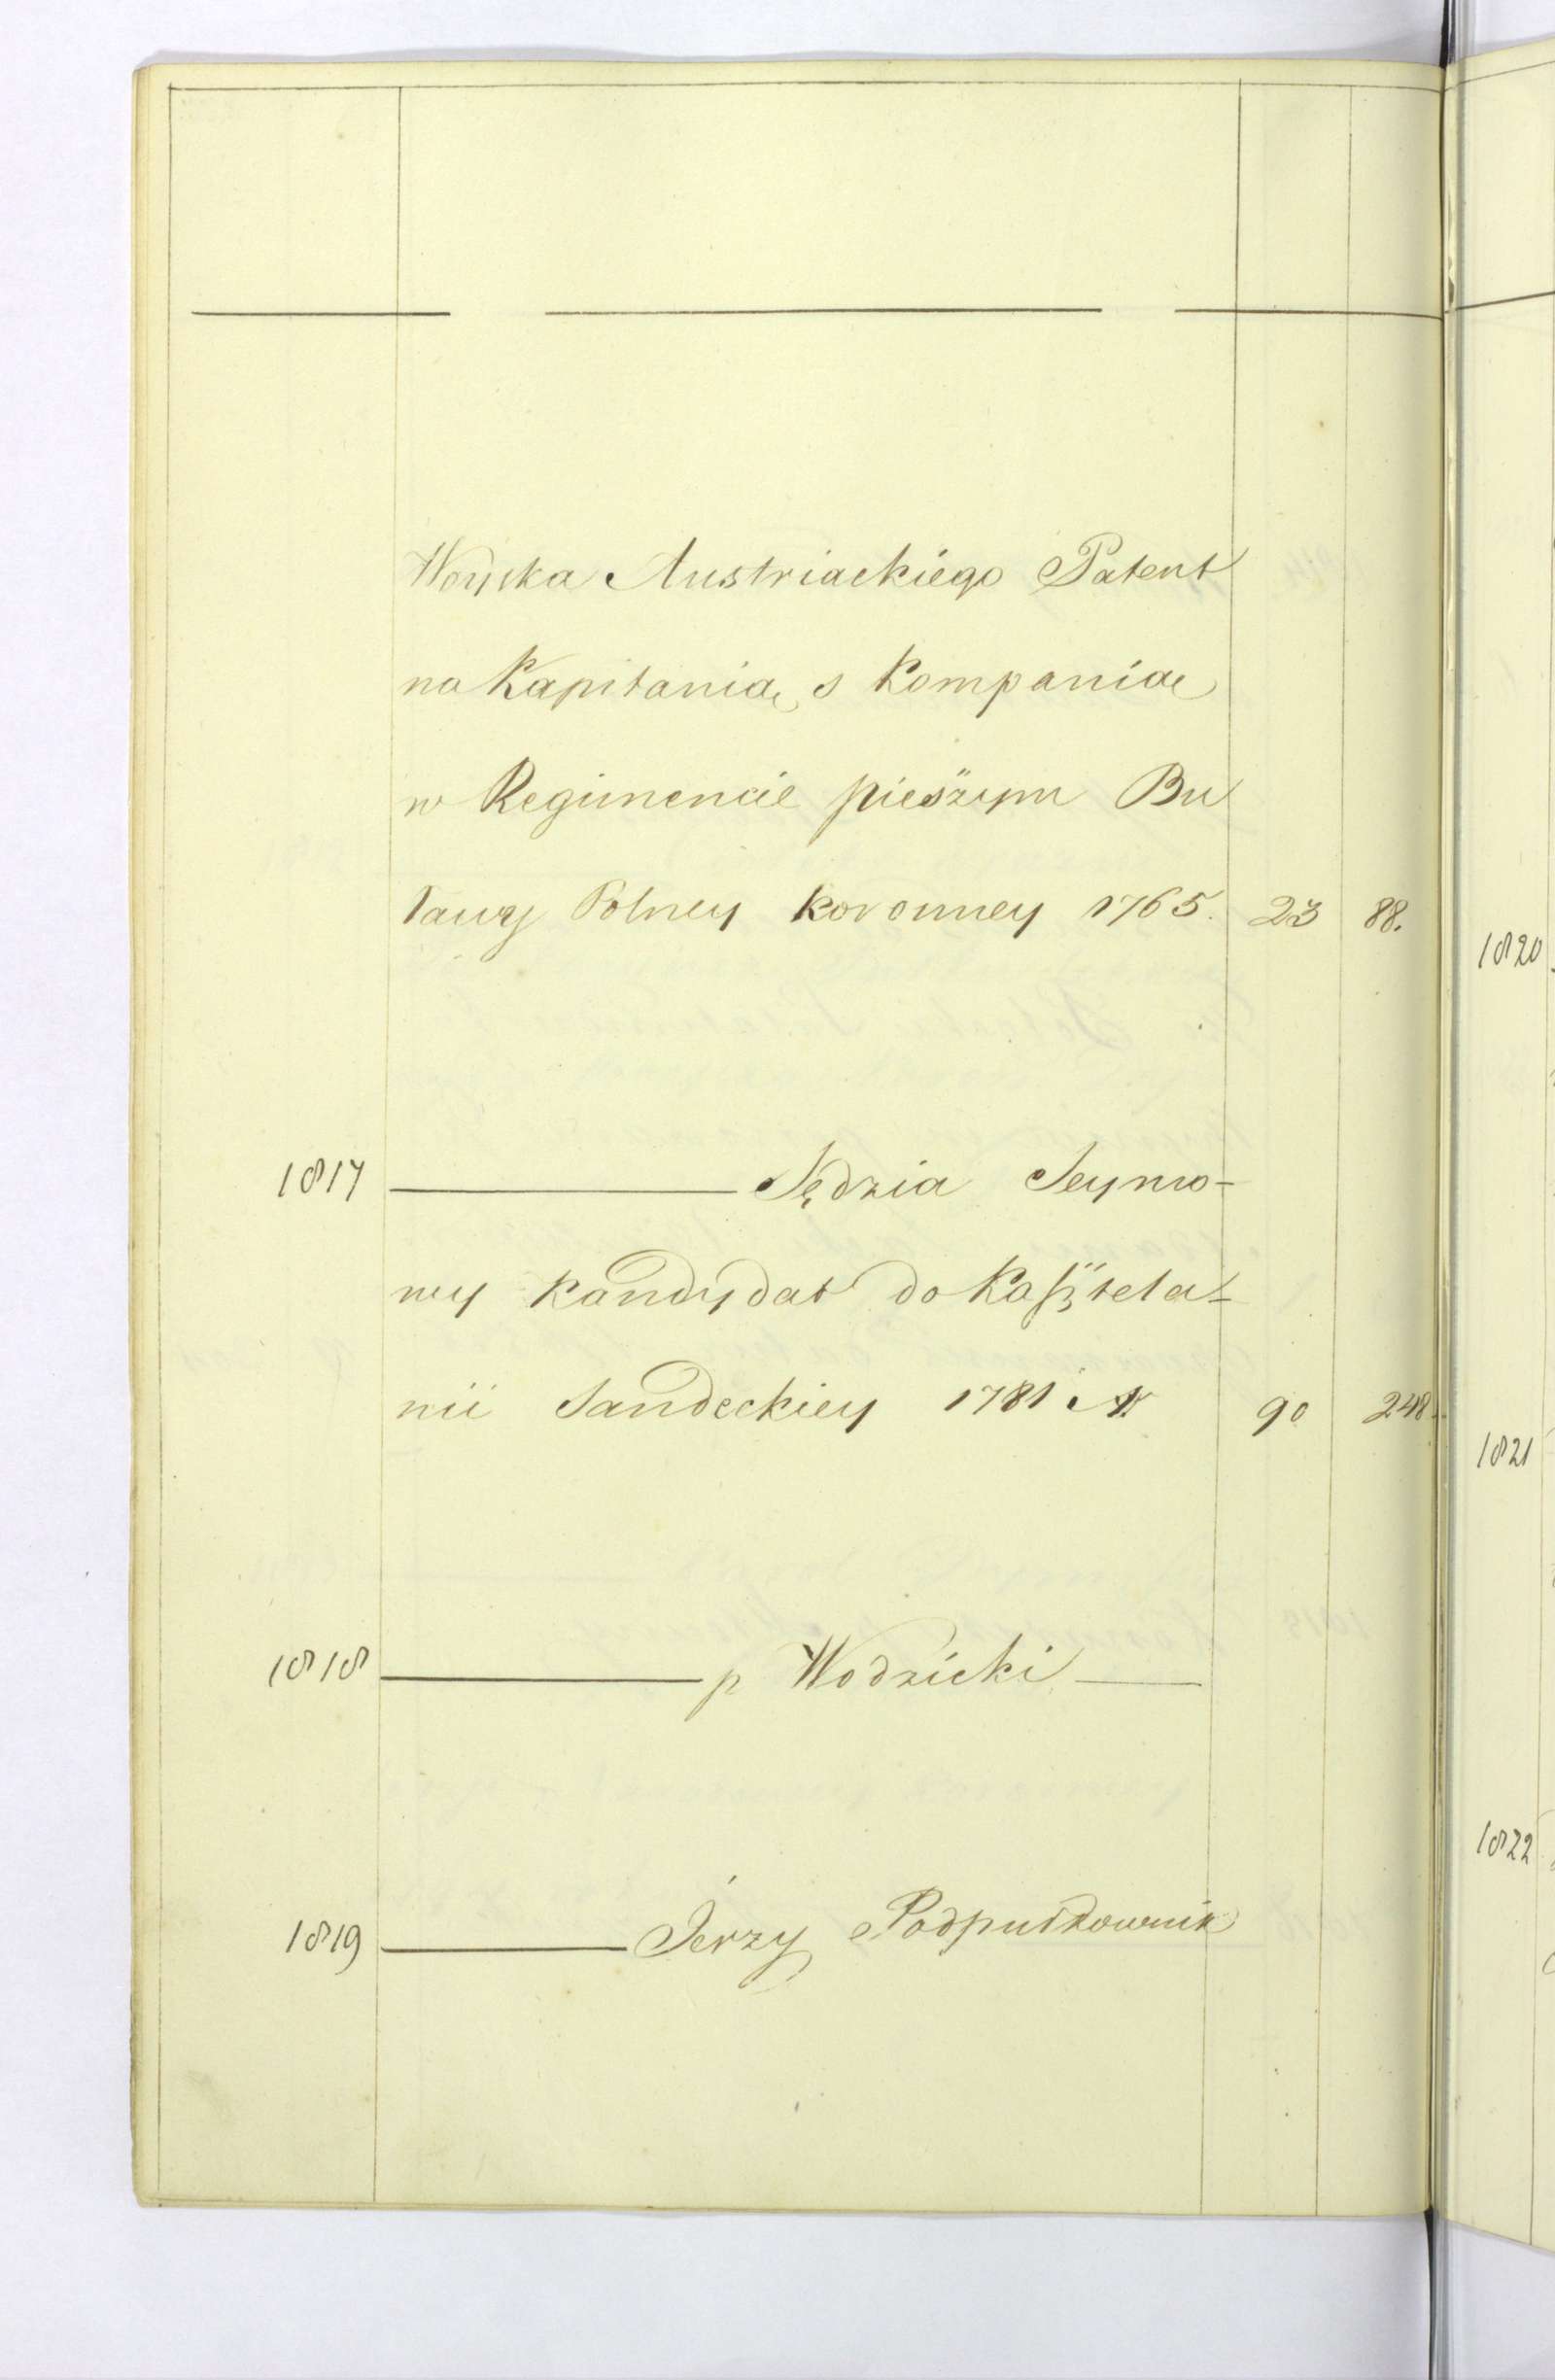 Woyska Austriackiego Patent
na Kapitanią s Kompanią
w Regimencie pieszym Bu
ławy Polney koronney 1765. 23 88.
1817 Sędzia Seymo-
wy kandydat do Kasztela-
nii Sandeckiey 1781 90 248.
1818 p Wodzicki
1819 Jerzy Podpułkownik
1820
1821
1822